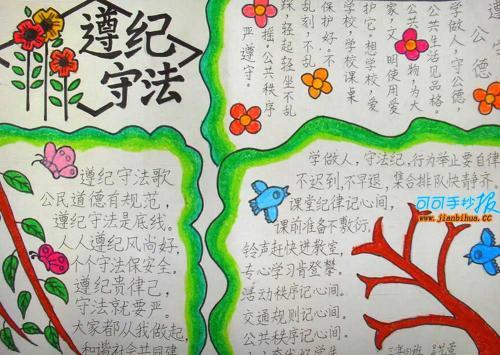 遵纪
守法
公德
学做人，守公德，
公共生活见品格。
家，文明使用爱
护它。想学校，爱
学校，学校课桌
保护好。不乱
乱刻，不乱
踩，轻起轻坐不乱
摇。公共秩序
严遵守。
遵纪守法歌
公民道德有规范，
遵纪守法是底线。
人人遵纪风尚好，
个个守法保安全。
遵纪贵律己，
守法就要严。
大家都从我做起，
和谐社会共同建
学做人，守法纪，行为举止要自律
不迟到，不早退，集合排队快静齐
课堂纪律记心间，
课前准备不敷衍。
铃声赶快进教室，
专心学习肯登攀。
活动秩序记心间。
交通规则记心间。
公共秩序记心间。
可可手抄报
www.jianbihua.cc